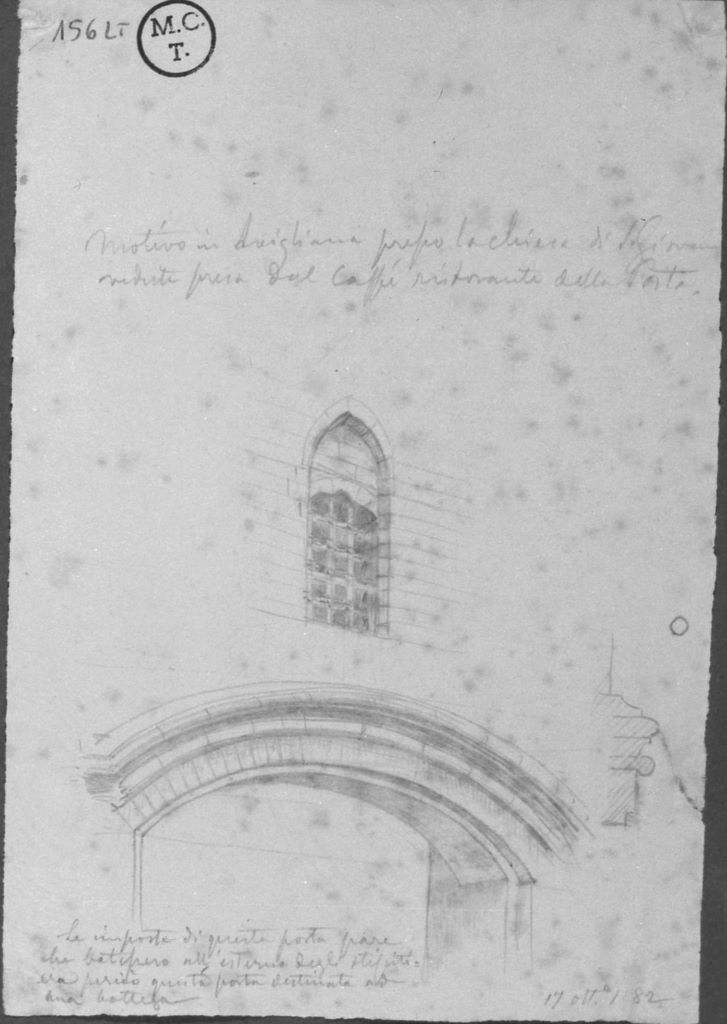 156 LT
M.C.
T.
Motivo in Avigliana presso la chiesa di S. Giovanni
veduta presa dal Caffé ristorante della Posta.
Le imposte di questa porta pare
che battessero all'esterno degli stipiti=
era perciò questa porta destinata ad
una bottega
17 ott.e 1882